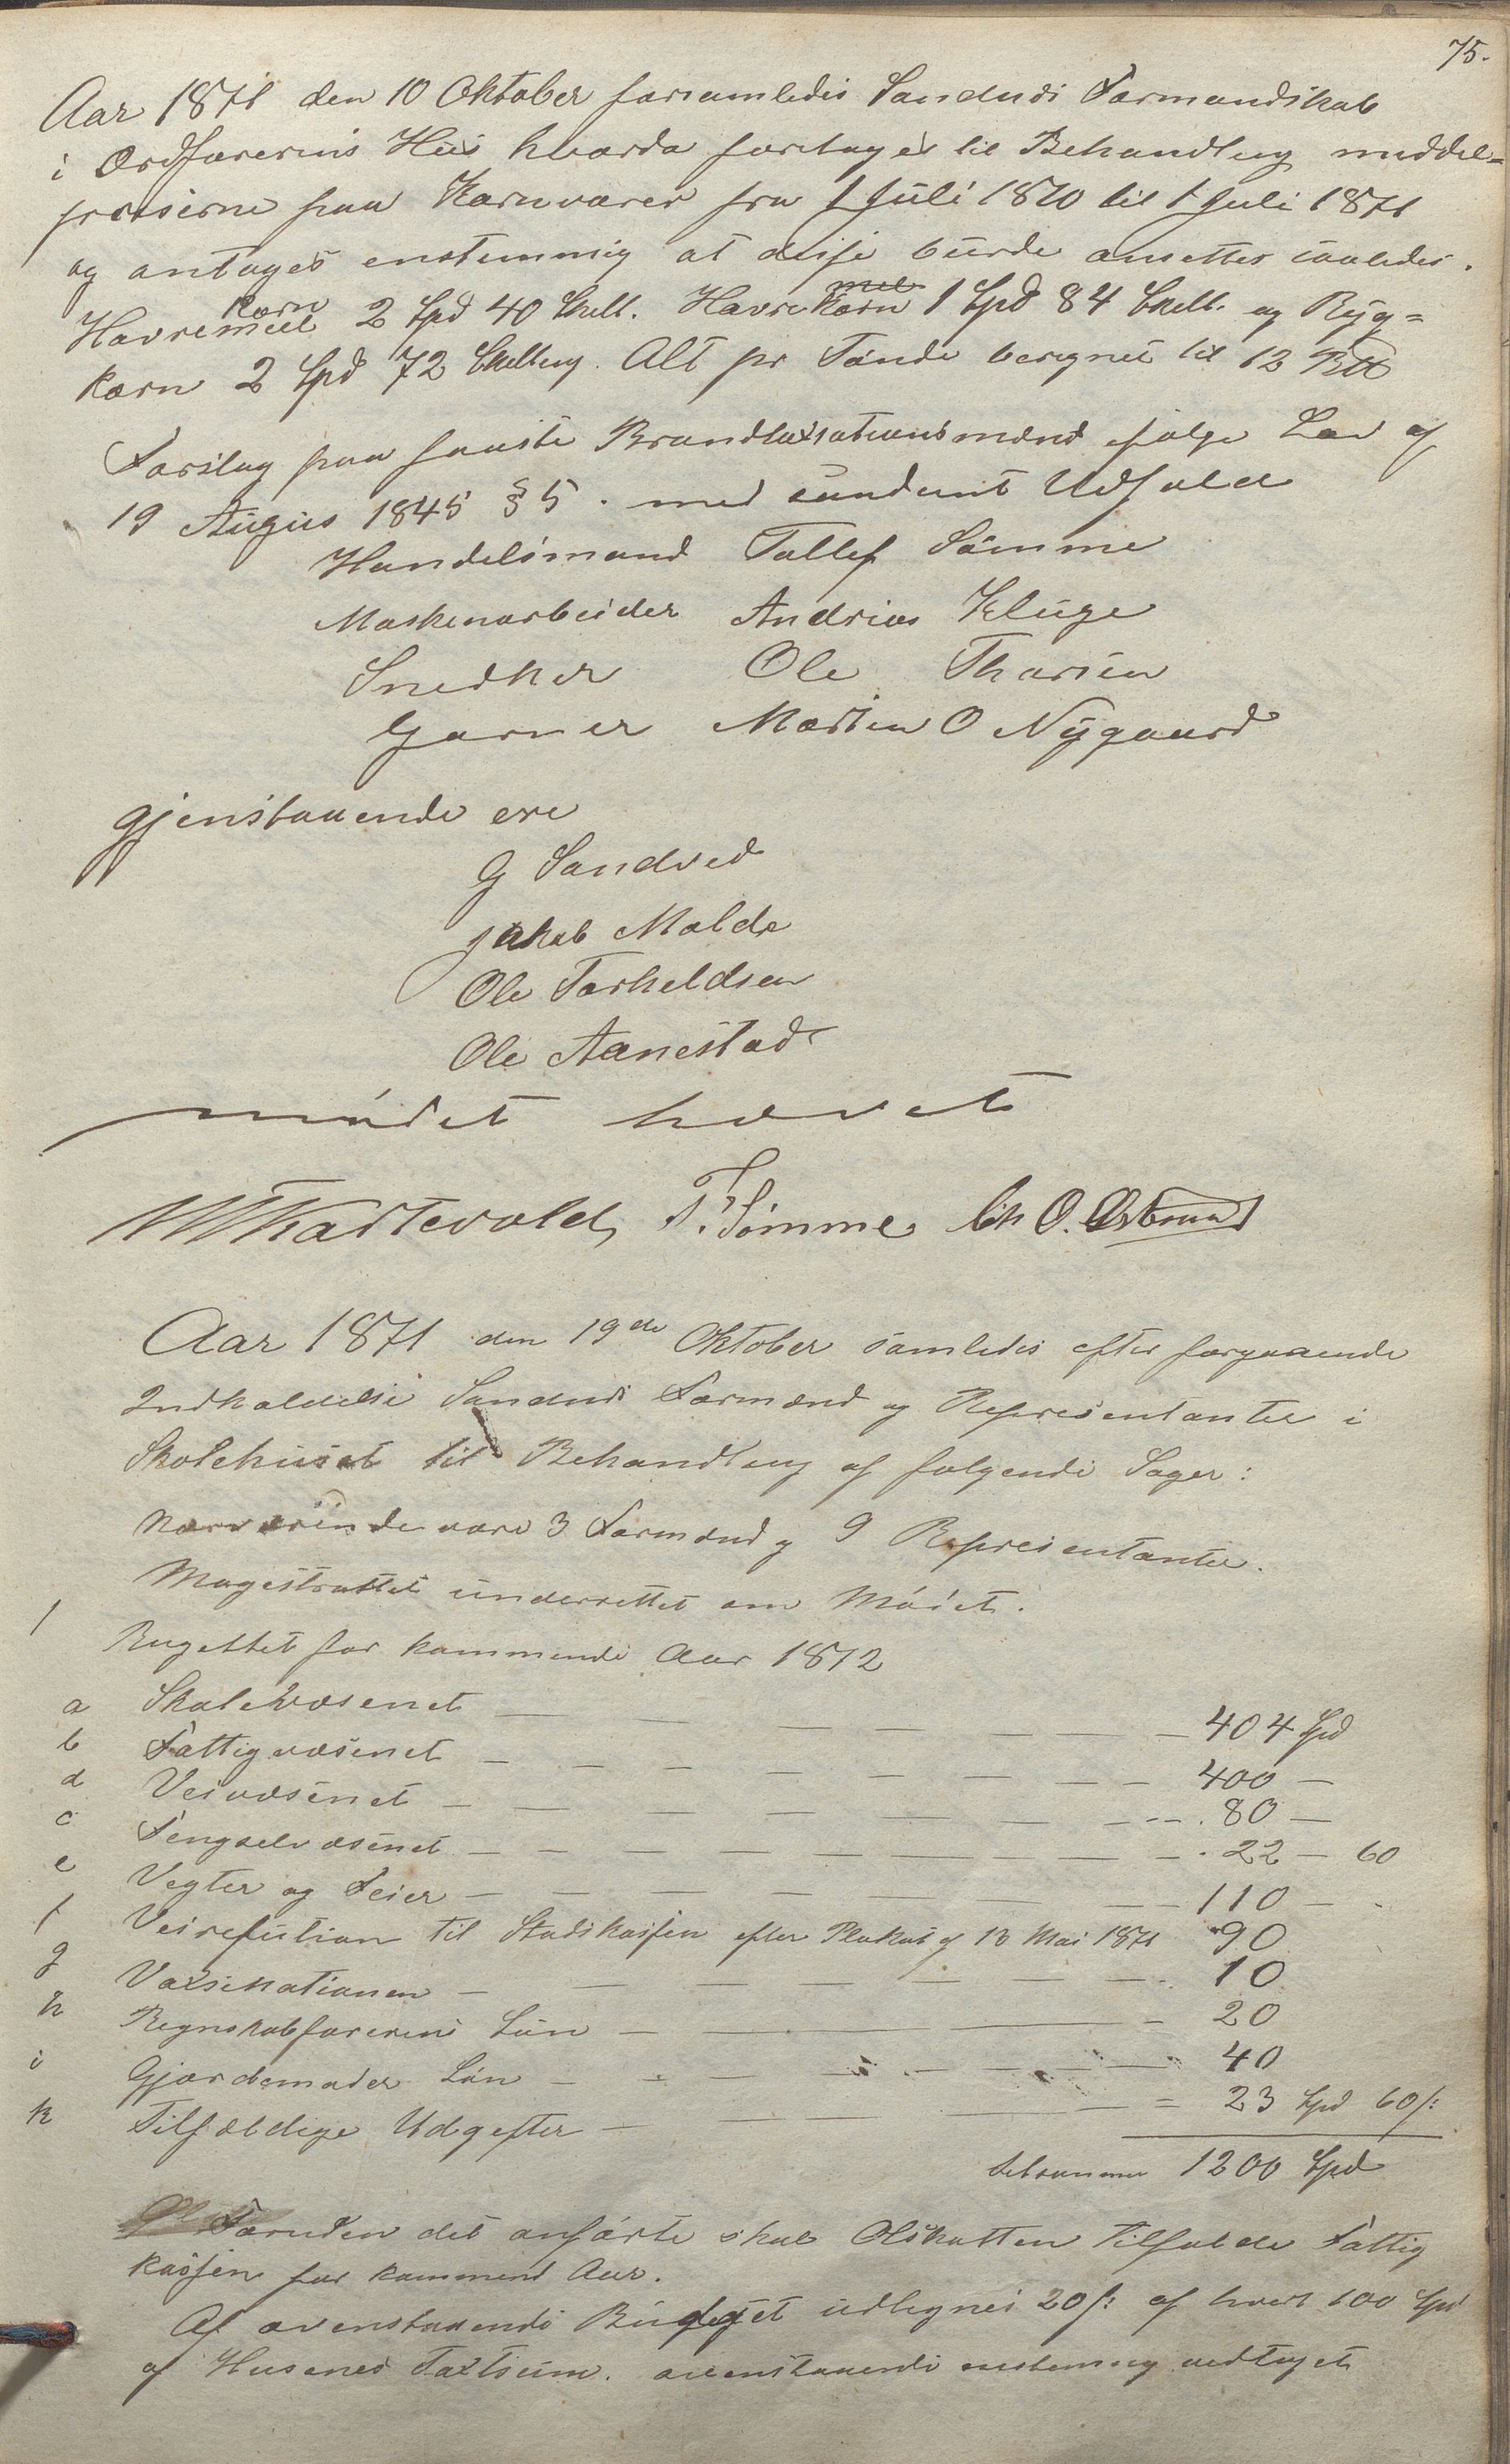 75.
Aar 1871 den 10 Oktober forsamledes Sandnæs Formandskab
i Ordførerens Huus hvorda foretages til Behandling middel=
priserne paa Kornvarer fra 1 Juli 1870 til 1 Juli 1871
og antages enstemmig at disse burde ansettes saaledes.
Korn mel
Havremeel 2 Spd 40 Skill. Havrekorn 1 Spd 84 Skill. og Byg=
korn 2 Spd 72 Skilling. Alt pr Tønde beregnet til 12
Forslag paa faaste Brandtaxationsmænd ifølge Lov af
19 August 1845 § 5. med saadant Udfald
Handelsmand Tollef Sømme
Maskenarbeider Andrias Kluge
Snedker Ole Thorsen
Garver Morten O Nÿgaard
Gjenstaaende ere
G Sandved
Jakob Molde
Ole Torkeldsen
Ole Aanestad
mødet hævet
Kartevold, T. Sømme Ch O. Østbrand
Aar 1871 den 19de Oktober samledes efter forgaaende
Indkaldelse Sandnæs Formænd og Representanter i
Skolehuset til Behandling af følgende Sager:
Nærværende vare 3 Formænd og 9 Representanter.
Magestrattet underrettet om Mødet.
1 Bugettet for kommende Aar 1872
a Skolevæsenet — — — — — 404 Spd
b Fattigvæsenet — — — — — 400 —
d Veivæsenet — — — — — 80 —
c Fengselvæsenet — — — — — 22 — 60
e Vegter og Feier — — — — — 110 —
f Veirefution til Stadskassen efter Plakat af 13 Mai 1871 90
g Vaxsinationen — — — — — 10
h Regnskabsførerens Løn — — — 20
i Gjordemoder Løn — — — — 40
k Tilfældige Udgefter — — — = 23 Spd 60 s:
tilsammen 1200 Spd
Foruden det anførte skal Ølskatten tilfalde Fattig
kassen for kommend Aar.
Af ovenstaaende Budget udlignes 20 s: af hvert 100 Spd
af Husenes Taxtsum. ovenstaaende enstemmig vedtaget